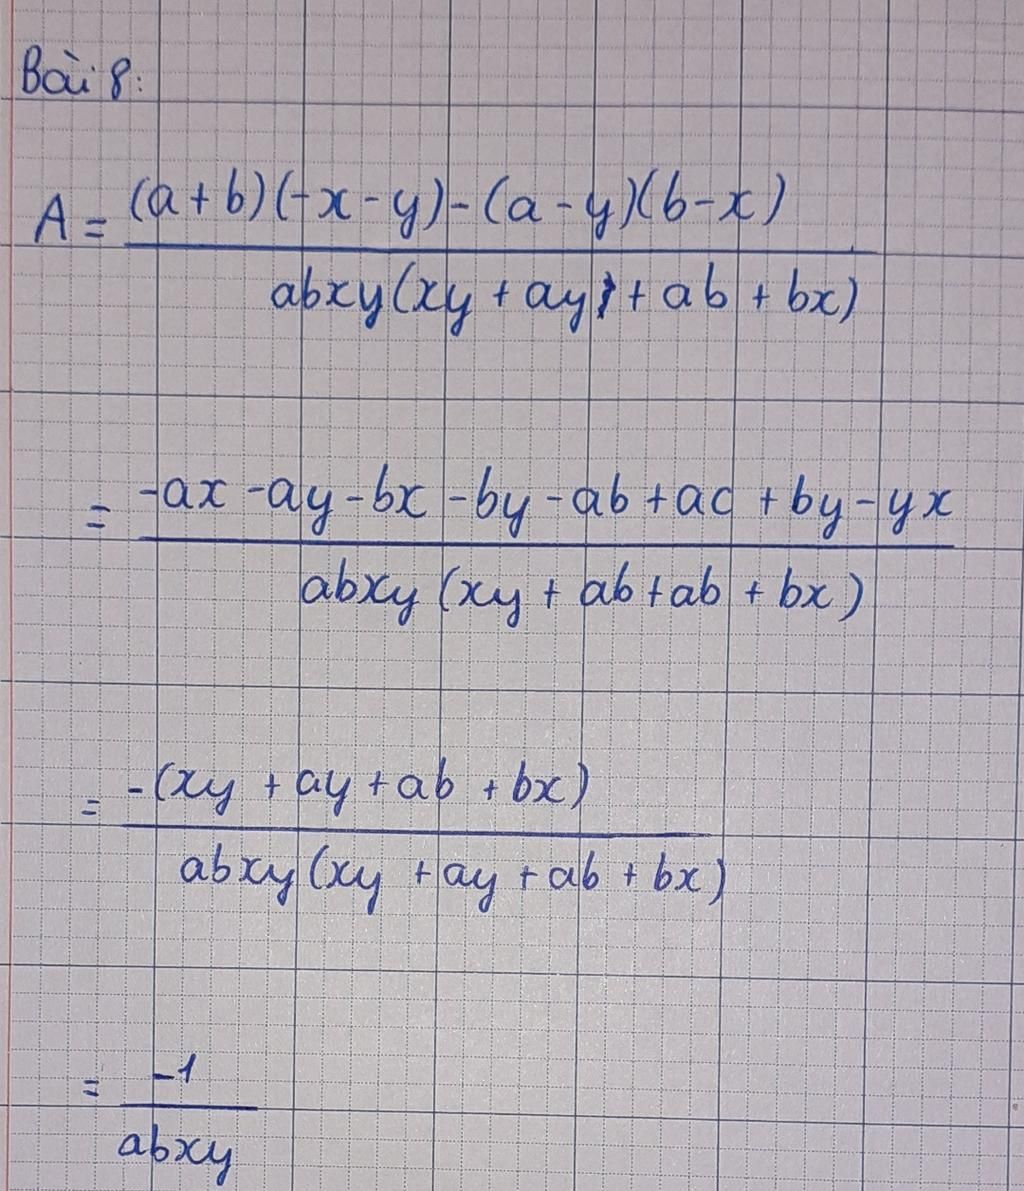 Bài 8:
A = (a+b)(-x-y)-(a-y)(b-x)
abxy(xy+ay+ab+bx)
= -ax-ay-bx-by-ab+ac+by-yx
abxy(xy+ab+ab+bx)
= -(xy+ay+ab+bx)
abxy(xy+ay+ab+bx)
= -1
abxy